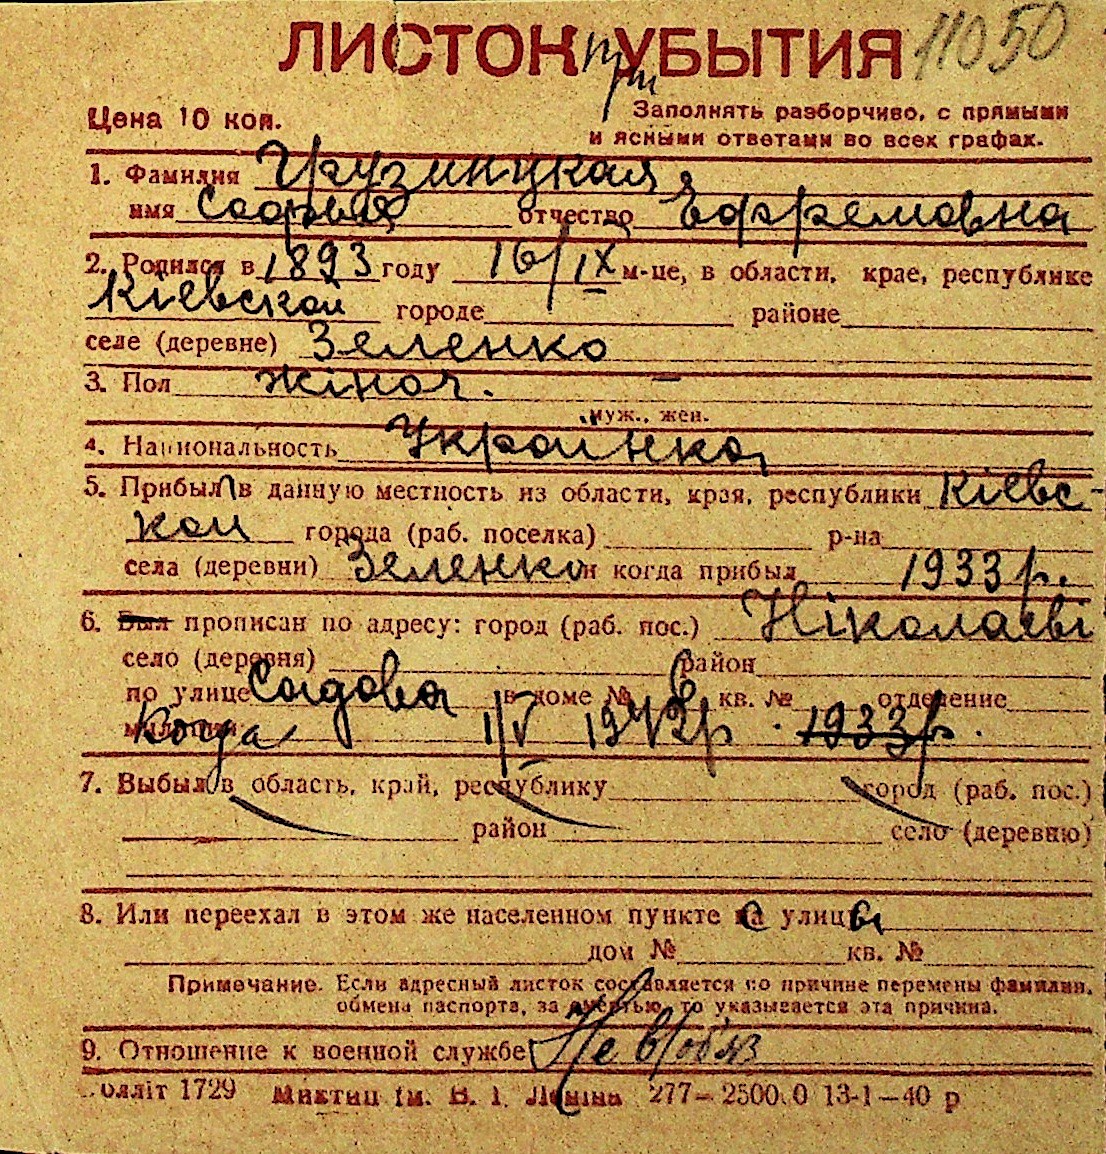 ЛИСТОК УБЫТИЯ 11050
При
Цена 10 коп.
Заполнять разборчиво, с прямыми
и ясными ответами во всех графах.
1. Фамилия Грузинуцкая
имя Софья отчество Ефремовна
2. Родился в 1893 году 16/IX м-це, в области, крае, республике
Кіевской городе районе
селе (деревне) Зеленко
3. Пол жіноч.
муж., жен.
4. Национальность Українка
5. Прибыл в данную местность из области, края, республики Кіевс-
кой города (раб. поселка) р-на
села (деревни) Зеленко и когда прибыл 1933 р.
6. Был прописан по адресу: город (раб. пос.) Ніколаеві
село (деревня) район
по улице Садова в доме № 6 кв. № отделение
милиции Когда 1/V 1942р. 1933р.
7. Выбыл в область, край, республику город (раб. пос.)
район село (деревню)
8. Или переехал в этом же населенном пункте с улицы
дом № кв. №
Примечание. Если адресный листок составляется по причине перемены фамилии,
обмена паспорта, за смертью, то указывается эта причина.
9. Отношение к военной службе Не в/обяз
олліт 1729 Миктип ім. В. І. Леніна 277—2500.0 13-1—40 р